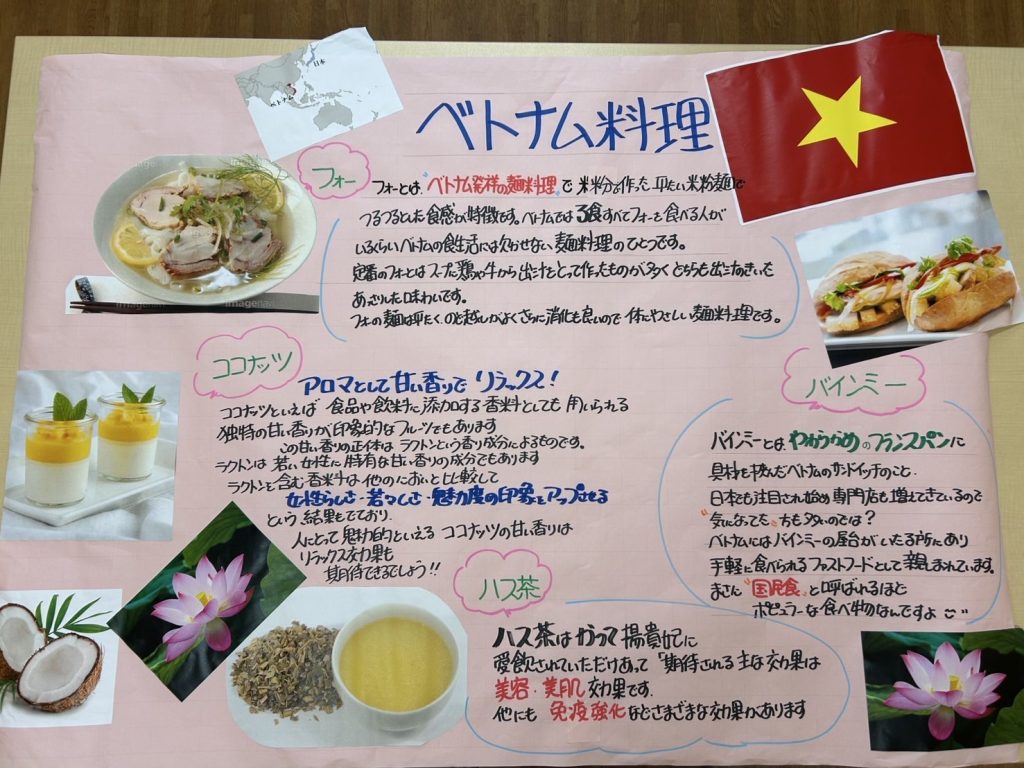 日本
ベトナム
ベトナム料理
フォー
フォーとは、"ベトナム発祥の麺料理"で 米粉で作った 平たい米粉麺で
つるつるとした食感が特徴です。ベトナムでは 3食すべてフォーを食べる人が
いるくらいベトナムの食生活には欠かせない 麺料理のひとつです。
定番のフォーとはスープに鶏や牛から出汁をとって作ったものが多く どちらも出汁がきいても
あっさりした味わいです。
フォの麺は平たく のど越しがよくさらに消化も良いので 体にやさしい麺料理です。
imagenavi
ココナッツ
アロマとして甘い香りで リラックス!
ココナッツといえば 食品や飲料に添加する香料としても 用いられる
独特の甘い香りが印象的なフルーツでもあります
この甘い香りの正体は ラクトンという香り成分によるものです。
ラクトンは 若い女性に特有な甘い香りの成分でもあります
ラクトンを含む香料は 他のにおいと比較して
女性らしさ・若々しさ・魅力度の印象をアップさせる
という結果もでており
人にとって魅力的といえる ココナッツの甘い香りは
リラックス効果も
期待できるでしょう!!
バインミー
バインミーとは やわらかめのフランスパンに
具材を挟んだベトナムのサンドイッチのこと.
日本でも注目され始め専門店も増えてきているので
"気になってた"方も多いのでは?
ベトナムにはバインミーの屋台がいたる所にあり
手軽に食べられるファストフードとして親しまれています.
まさに"国民食"と呼ばれるほど
ポピュラーな食べ物なんですよ
ハス茶
ハス茶は かつて 揚貴妃に
愛飲されていただけあって「期待される主な効果は
美容・美肌 効果です.
他にも 免疫強化などさまざまな効果があります